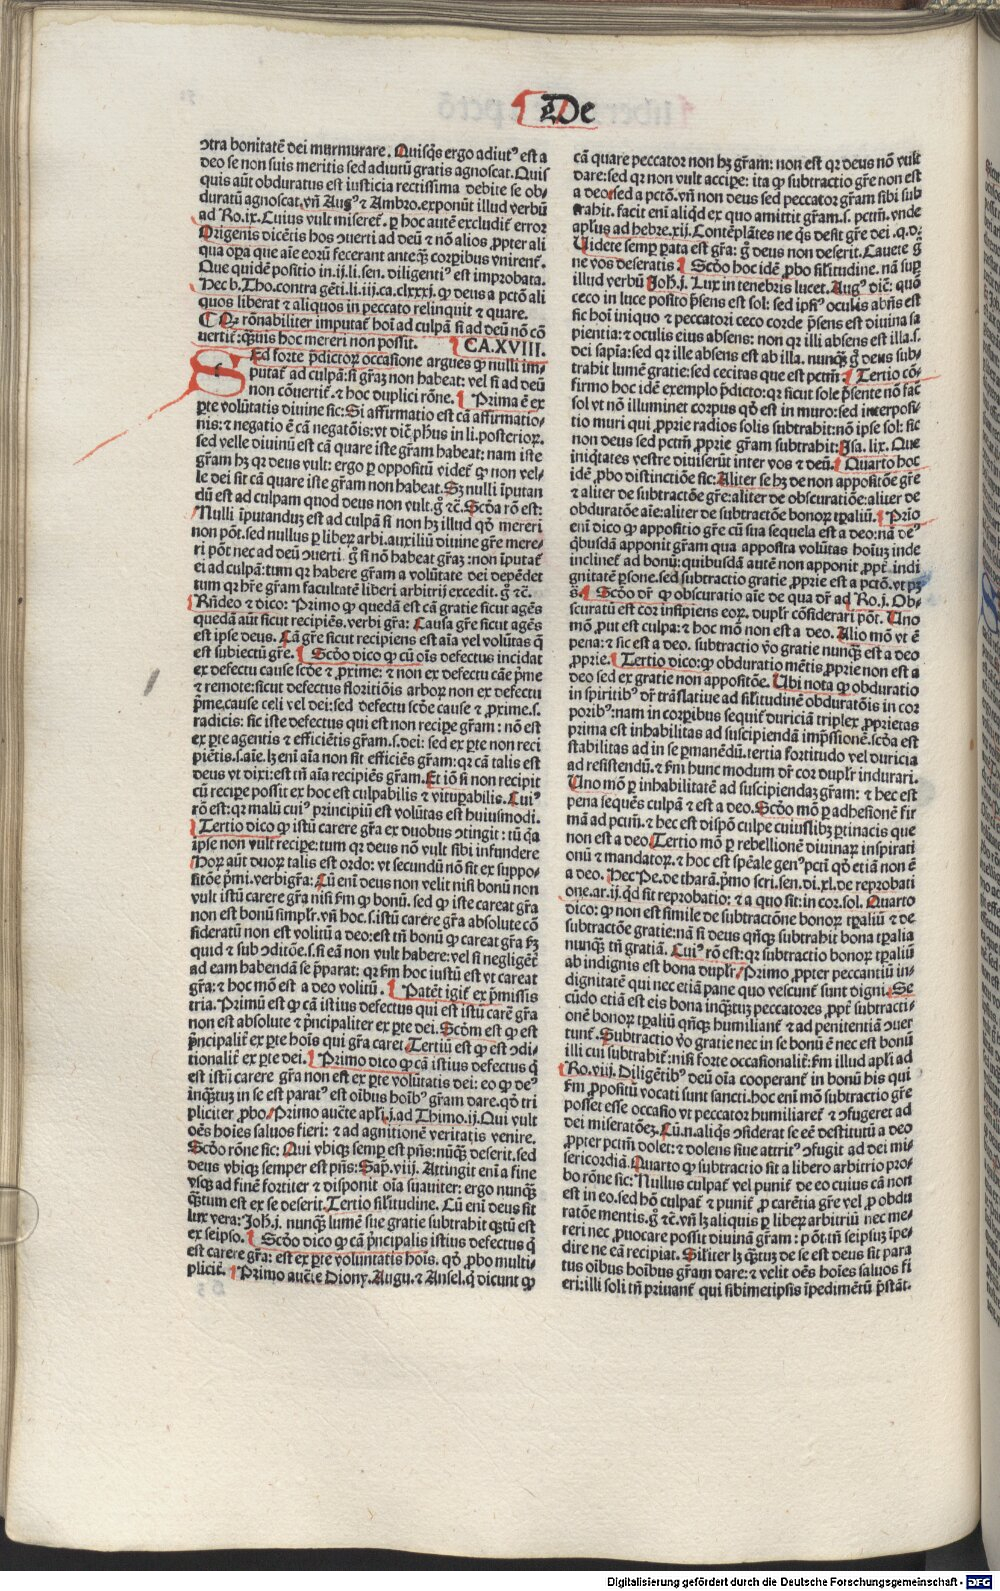 De
ↄtra bonitatē dei murmurare. Quisq̄s ergo adiut⁹ est a
deo se non suis meritis sed adiutū gratis agnoscat. Quis
quis aūt obduratus est iusticia rectissima debite se ob⸗
duratū agnoscat. vn̄ Aug⁹ ⁊ Ambro. exponūt illud verbū
ad Ro. ix. Cuius vult miseret̄. p hoc autē excludit̄ error
Origenis dicētis hos ↄuerti ad deū ⁊ nō alios ꝓpter ali
qua oꝑa que aīe eorū fecerant anteꝗ̄ corꝑibus vnirent̄.
Que quidē positio in. ij. li. sen. diligenti⁹ est improbata.
Hec b. Tho. contra gēti. li. iij. ca. clxxxj. ꝙ deus a pctō ali
quos liberat ⁊ aliquos in peccato relinquit ⁊ quare.
rōnabiliter imputat̄ hoī ad culpā si ad deū nō cō
uertit̄: ꝗ̄uis hoc mereri non possit. CA. XVIII.
SEd forte p̄dictoꝝ occasione argues ꝙ nulli im⸗
putat̄ ad culpā: si gr̄aꝫ non habeat: vel si ad deū
non cōuertit̄. ⁊ hoc duplici rōne. Prima ē ex
ꝑte volūtatis diuine sic: Si affirmatio est cā affirmatio⸗
nis: ⁊ negatio ē cā negatōis: vt dic̄ ph̄us in li. posterioꝝ.
sed velle diuinū est cā quare iste gr̄am habeat: nam iste
gr̄am hꝫ qꝛ deus vult: ergo ꝑ oppositū videt̄ ꝙ non vel⸗
le dei sit cā quare iste gr̄am non habeat. Sꝫ nulli īputan
dū est ad culpam quod deus non vult. g̊ ⁊c̄. Scd̄a rō est:
Nulli īputanduꝫ est ad culpā si non hꝫ illud qd̄ mereri
non pōt. sed nullus ꝑ libeꝝ arbi. auxiliū diuine gr̄e mere⸗
ri pōt nec ad deū ↄuerti g̊ si nō habeat gr̄aꝫ: non īputat̄
ei ad culpā: tum qꝛ habere gr̄am a volūtate dei depēdet
tum qꝛ hr̄e gr̄am facultatē liberi arbitrij excedit. g̊ ⁊c̄.
Rn̄deo ⁊ dico: Primo ꝙ quedā est cā gratie sicut agēs
quedā aūt sicut recipiēs. verbi gr̄a: Causa gr̄e sicut agēs
est ipse deus. Cā gr̄e sicut recipiens est aīa vel volūtas q̄
est subiectū gr̄e. Scd̄o dico ꝙ cū oīs defectus incidat
ex defectu cause scd̄e ⁊ ꝓxime: ⁊ non ex defectu cāe p̄me
⁊ remote: sicut defectus floritiōis arboꝝ non ex defectu
p̄me, cause celi vel dei: sed defectu scd̄e cause ⁊ ꝓxime. s.
radicis: sic iste defectus qui est non recipe gr̄am: nō est
ex ꝑte agentis ⁊ efficiētis gr̄am. s. dei: sed ex ꝑte non reci
piētis. s. aīe. lꝫ enī aīa non sit efficiēs gr̄am: qꝛ cā talis est
deus vt dixi: est tn̄ aīa recipiēs gr̄am. Et iō si non recipit
cū recipe possit ex hoc est culpabilis ⁊ vituꝑabilis. Cui⁹
rō est: qꝛ malū cui⁹ principiū est volūtas est huiusmodi.
Tertio dico ꝙ istū carere gr̄a ex duobus ↄtingit: tū q̄a
ipse non vult recipe: tum qꝛ deus nō vult sibi infundere
Hoꝝ aūt duoꝝ talis est ordo: vt secundū nō sit ex suppo⸗
sitōe p̄mi. verbigr̄a: Cū enī deus non velit nisi bonū non
vult istū carere gr̄a nisi fm̄ ꝙ bonū. sed ꝙ iste careat gr̄a
non est bonū simplr̄. vn̄ hoc. s. istū carere gr̄a absolute cō
sideratū non est volitū a deo: est tn̄ bonū ꝙ careat gr̄a fꝫ
quid ⁊ sub ↄditōe. s. si eā non vult habere: vel si negliget̄
ad eam habendā se p̄parat: qꝛ fm̄ hoc iustū est vt careat
gr̄a: ⁊ hoc mō est a deo volitū. Patēt igit̄ ex p̄missis
tria. Primū est ꝙ cā istius defectus qui est istū carē gr̄a
non est absolute ⁊ p̄ncipaliter ex ꝑte dei. Scd̄m est ꝙ est
p̄ncipalit̄ ex ꝑte hoīs qui gr̄a caret. Tertiū est ꝙ est ↄdi⸗
tionalit̄ ex ꝑte dei. Primo dico ꝙ cā istius defectus q̄
est istū carere gr̄a non est ex ꝑte volūtatis dei: eo ꝙ de⁹
inꝗ̄tuꝫ in se est parat⁹ est oībus hoīb⁹ gr̄am dare. qd̄ tri
pliciter ꝓbo. Primo auc̄te apl̄i. j. ad Thimo. ij. Qui vult
oēs hoīes saluos fieri: ⁊ ad agnitionē veritatis venire.
Scd̄o rōne sic: Qui vbiqꝫ semꝑ est pn̄s: nūꝗ̄ deserit. sed
deus vbiqꝫ semper est pn̄s: Sap̄. viij. Attingit enī a fine
vsqꝫ ad finē fortiter ⁊ disponit oīa suauiter: ergo nunꝗ̄
ꝗ̄tum est ex se deserit. Tertio sil̄itudine. Cū enī deus sit
lux vera: Joh̄. j. nunꝗ̄ lumē sue gratie subtrahit ꝗ̄tū est
ex seipso. Scd̄o dico ꝙ cā p̄ncipalis istius defectus q̄
est carere gr̄a: est ex ꝑte voluntatis hoīs. qd̄ ꝓbo multi⸗
plicit̄. Primo auc̄te Diony. Augu. ⁊ Ansel. q̄ dicunt ꝙ
cā quare peccator non hꝫ gr̄am: non est qꝛ deus nō vult
dare: sed qꝛ non vult accipe: ita ꝙ subtractio gr̄e non est
a deo. sed a pctō. vn̄ non deus sed peccator gr̄am sibi sub
trahit. facit enī aliqd̄ ex quo amittit gr̄am. s. pctm̄. vnde
apl̄us ad hebre. xij. Contēplātes ne q̄s desit gr̄e dei. q. d.
Uidete semꝑ ꝑata est gr̄a: g̊ deus non deserit. Cauete g̊
ne vos deseratis. Scd̄o hoc idē ꝓbo sil̄itudine. nā suꝑ
illud verbū Joh̄. j. Lux in tenebris lucet. Aug⁹ dic̄: quō
ceco in luce posito p̄sens est sol: sed ipsi⁹ oculis abn̄s est
sic hoī iniquo ⁊ peccatori ceco corde p̄sens est diuina sa
pientia: ⁊ oculis eius absens: non qꝛ illi absens est illa. s.
dei sapīa: sed qꝛ ille absens est ab illa. nunꝗ̄ g̊ deus sub⸗
trahit lumē gratie: sed cecitas que est pctm̄. Tertio cō⸗
firmo hoc idē exemplo p̄dicto: qꝛ sicut sole p̄sente nō fac̄
sol vt nō illuminet corpus qd̄ est in muro: sed interposi⸗
tio muri qui ꝓprie radios solis subtrahit: nō ipse sol: sic
non deus sed pctm̄ ꝓprie gr̄am subtrahit: Isa. lix. Que
iniq̄tates vestre diuiserūt inter vos ⁊ deū. Quarto hoc
idē ꝓbo distinctiōe sic: Aliter se hꝫ de non appositōe gr̄e
⁊ aliter de subtractōe gr̄e: aliter de obscuratiōe: aliter de
obduratōe aīe: aliter de subtractōe bonoꝝ tꝑaliū. Prīo
enī dico ꝙ appositio gr̄e cū sua sequela est a deo: nā de⁹
q̄busdā apponit gr̄am qua apposita volūtas hoīuꝫ inde
inclinet̄ ad bonū: quibusdā autē non apponit ꝓpt̄ indi
gnitatē ꝑsone. sed subtractio gratie ꝓprie est a pctō. vt pꝫ
s̄. Scd̄o dr̄ ꝙ obscuratio aīe de qua dr̄ ad Ro. j. Ob⸗
scuratū est cor insipiens eoꝝ. duplr̄ cōsiderari pōt. Uno
mō ꝓut est culpa: ⁊ hoc mō non est a deo. Alio mō vt ē
pena: ⁊ sic est a deo. subtractio v̊o gratie nunꝗ̄ est a deo
ꝓprie. Tertio dico: ꝙ obduratio mētis ꝓprie non est a
deo sed ex gratie non appositōe. Ubi nota ꝙ obduratio
in spiritib⁹ dr̄ trāslatiue ad sil̄itudinē obduratōis in cor
porib⁹: nam in corꝑibus sequit̄ duriciā triplex ꝓprietas
prima est inhabilitas ad suscipiendā imp̄ssionē. scd̄a est
stabilitas ad in se ꝑmanēdū. tertia fortitudo vel duricia
ad resistendū. ⁊ fm̄ hunc modum dr̄ cor duplr̄ indurari.
Uno mō ꝑ inhabilitatē ad suscipiendaꝫ gr̄am: ⁊ hec est
pena sequēs culpā ⁊ est a deo. Scd̄o mō ꝑ adhesionē fir
mā ad pctm̄. ⁊ hec est dispō culpe cuiuslibꝫ ꝑtinacis que
non est a deo. Tertio mō ꝑ rebellionē diuinaꝝ inspirati
onū ⁊ mandatoꝝ. ⁊ hoc est spēale gen⁹ pcti qd̄ etiā non ē
a deo. Hec Pe. de thara. p̄mo scri. sen. di. xl. de reprobati
one. ar. ij. qd̄ sit reprobatio: ⁊ a quo sit: in cor. sol. Quarto
dico: ꝙ non est simile de subtractōne bonoꝝ tꝑaliū ⁊ de
subtractōe gratie: nā si deus qn̄qꝫ subtrahit bona tꝑalia
nunꝗ̄ tn̄ gratiā. Cui⁹ rō est: qꝛ subtractio bonoꝝ tꝑaliū
ab indignis est bona duplr̄. Primo ꝓpter peccantiū in⸗
dignitatē qui nec etiā pane quo vescunt̄ sunt digni. Se
cūdo etiā est eis bona inꝗ̄tuꝫ peccatores ꝓpt̄ subtracti⸗
onē bonoꝝ tꝑaliū qn̄qꝫ humiliant̄ ⁊ ad penitentiā ↄuer
tunt̄. Subtractio v̊o gratie nec in se bonū ē nec est bonū
illi cui subtrahit̄: nisi forte occasionalit̄: fm̄ illud apl̄i ad
Ro. viij. Diligētib⁹ deū oīa cooperant̄ in bonū his qui
fm̄ ꝓpositū vocati sunt sancti. hoc enī mō subtractio gr̄e
posset esse occasio vt peccator humiliaret̄ ⁊ ↄfugeret ad
dei miseratōeꝫ. Cū. n. aliq̄s ↄsiderat se eē destitutū a deo
ꝓpter pctm̄ dolet: ⁊ dolens siue attrit⁹ ↄfugit ad dei mi⸗
sericordiā. Quarto ꝙ subtractio sit a libero arbitrio pro⸗
bo rōne sic: Nullus culpat̄ vel punit̄ de eo cuius cā non
est in eo. sed hō culpat̄ ⁊ punit̄ ꝓ carētia gr̄e vel ꝓ obdu
ratōe mentis. g̊ ⁊c̄. vn̄ lꝫ aliquis ꝑ libeꝝ arbitriū nec me⸗
reri nec ꝓuocare possit diuinā gr̄am: pōt tn̄ seipsuꝫ īpe⸗
dire ne eā recipiat. Sil̄iter lꝫ ꝗ̄tuꝫ de se est deus sit para
tus oībus hoībus gr̄am dare: ⁊ velit oēs hoīes saluos fi
eri: illi soli tn̄ priuant̄ qui sibimetipsis īpedimētū p̄stāt.
Digitalisierung gefördert durch die Deutsche Forschungsgemeinschaft - DFG